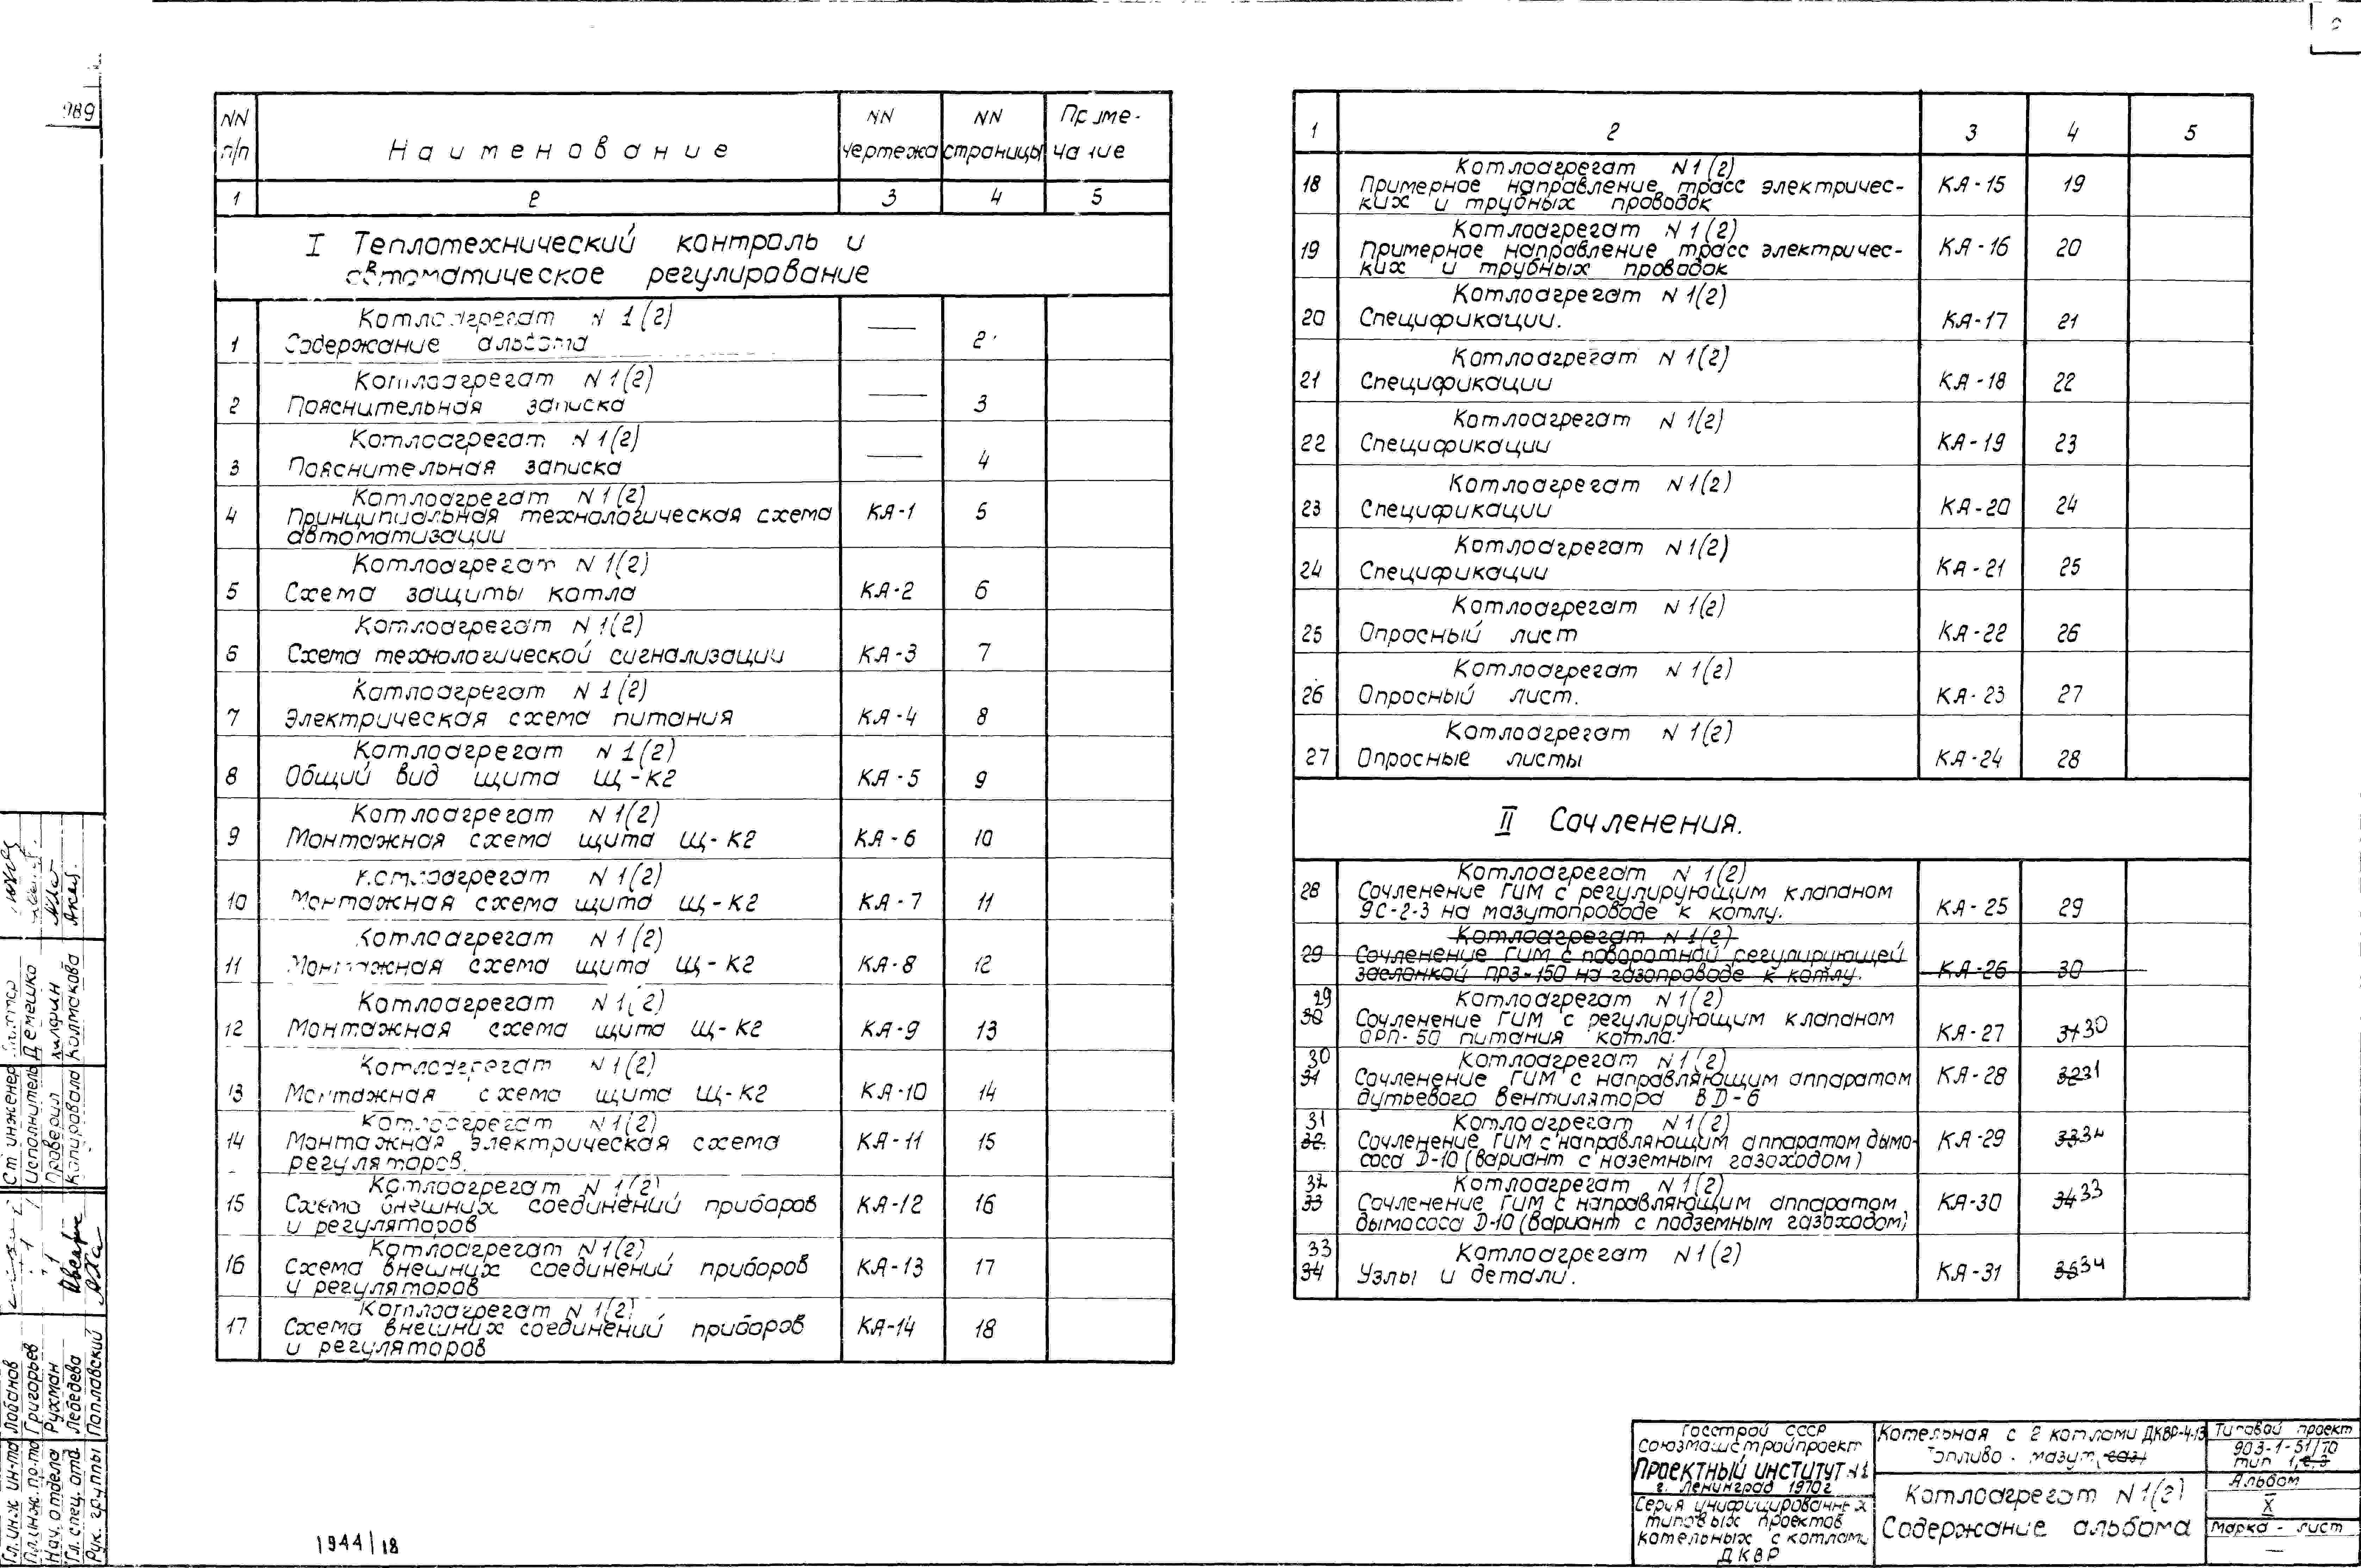 989
NN п/п Наименование NN чертежа NN страницы Примечание
1 2 3 4 5
I Теплотехнический контроль и
автоматическое регулирование
Котлоагрегат N 1(2)
1 Содержание альбома — 2
Котлоагрегат N 1(2)
2 Пояснительная записка — 3
Котлоагрегат N 1(2)
3 Пояснительная записка — 4
Котлоагрегат N 1(2)
4 Принципиальная технологическая схема КА-1 5
автоматизации
Котлоагрегат N 1(2)
5 Схема защиты котла КА-2 6
Котлоагрегат N 1(2)
6 Схема технологической сигнализации КА-3 7
Котлоагрегат N 1(2)
7 Электрическая схема питания КА-4 8
Котлоагрегат N 1(2)
8 Общий вид щита Щ-К2 КА-5 9
Котлоагрегат N 1(2)
9 Монтажная схема щита Щ-К2 КА-6 10
Котлоагрегат N 1(2)
10 Монтажная схема щита Щ-К2 КА-7 11
Котлоагрегат N 1(2)
11 Монтажная схема щита Щ-К2 КА-8 12
Котлоагрегат N 1(2)
12 Монтажная схема щита Щ-К2 КА-9 13
Котлоагрегат N 1(2)
13 Монтажная схема щита Щ-К2 КА-10 14
Котлоагрегат N 1(2)
14 Монтажная электрическая схема КА-11 15
регуляторов.
Котлоагрегат N 1(2)
15 Схема внешних соединений приборов КА-12 16
и регуляторов
Котлоагрегат N 1(2)
16 Схема внешних соединений приборов КА-13 17
и регуляторов
Котлоагрегат N 1(2)
17 Схема внешних соединений приборов КА-14 18
и регуляторов
1 2 3 4 5
Котлоагрегат N 1(2)
18 Примерное направление трасс электричес- КА-15 19
ких и трубных проводок
Котлоагрегат N 1(2)
19 Примерное направление трасс электричес- КА-16 20
ких и трубных проводок
Котлоагрегат N 1(2)
20 Спецификации. КА-17 21
Котлоагрегат N 1(2)
21 Спецификации КА-18 22
Котлоагрегат N 1(2)
22 Спецификации КА-19 23
Котлоагрегат N 1(2)
23 Спецификации КА-20 24
Котлоагрегат N 1(2)
24 Спецификации КА-21 25
Котлоагрегат N 1(2)
25 Опросный лист КА-22 26
Котлоагрегат N 1(2)
26 Опросный лист. КА-23 27
Котлоагрегат N 1(2)
27 Опросные листы КА-24 28
II Сочленения.
Котлоагрегат N 1(2)
28 Сочленение ГИМ с регулирующим клапаном
9С-2-3 на мазутопроводе к котлу. КА-25 29
Котлоагрегат N 1(2)
29 Сочленение ГИМ с поворотной регулирующей
заслонкой ПРЗ-150 на газопроводе к котлу. КА-26 30
29 Котлоагрегат N 1(2)
30 Сочленение ГИМ с регулирующим клапаном
ОРП-50 питания котла. КА-27 31 30
30 Котлоагрегат N 1(2)
31 Сочленение ГИМ с направляющим аппаратом КА-28 32 31
дутьевого вентилятора ВД-6
31 Котлоагрегат N 1(2)
32 Сочленение ГИМ с направляющим аппаратом дымо- КА-29 33
соса Д-10 (вариант с наземным газоходом)
32 Котлоагрегат N 1(2)
33 Сочленение ГИМ с направляющим аппаратом КА-30 34 33
дымососа Д-10 (вариант с подземным газоходом)
33 Котлоагрегат N 1(2)
34 Узлы и детали. КА-31 35 34
Гл. инж ин-та Лобанов
Гл. инж. пр-та Григорьев
Нач. отдела Рухман
Гл. спец. отд. Лебедева
Рук. группы Поплавский
Ст. инженер
Исполнитель Демешко
Проверил
Копировала Колмакова
1944/18
Госстрой СССР
Союзмашстройпроект
Проектный институт N1
г. Ленинград 1970г
Серия унифицированных
типовых проектов
котельных с котлами
ДКВР
Котельная с 2 котлами ДКВР-4-13
Топливо - мазут, газ
Котлоагрегат N 1(2)
Содержание альбома
Типовой проект
903-1-51/70
тип 1,2,3
Альбом
X
Марка - лист
—